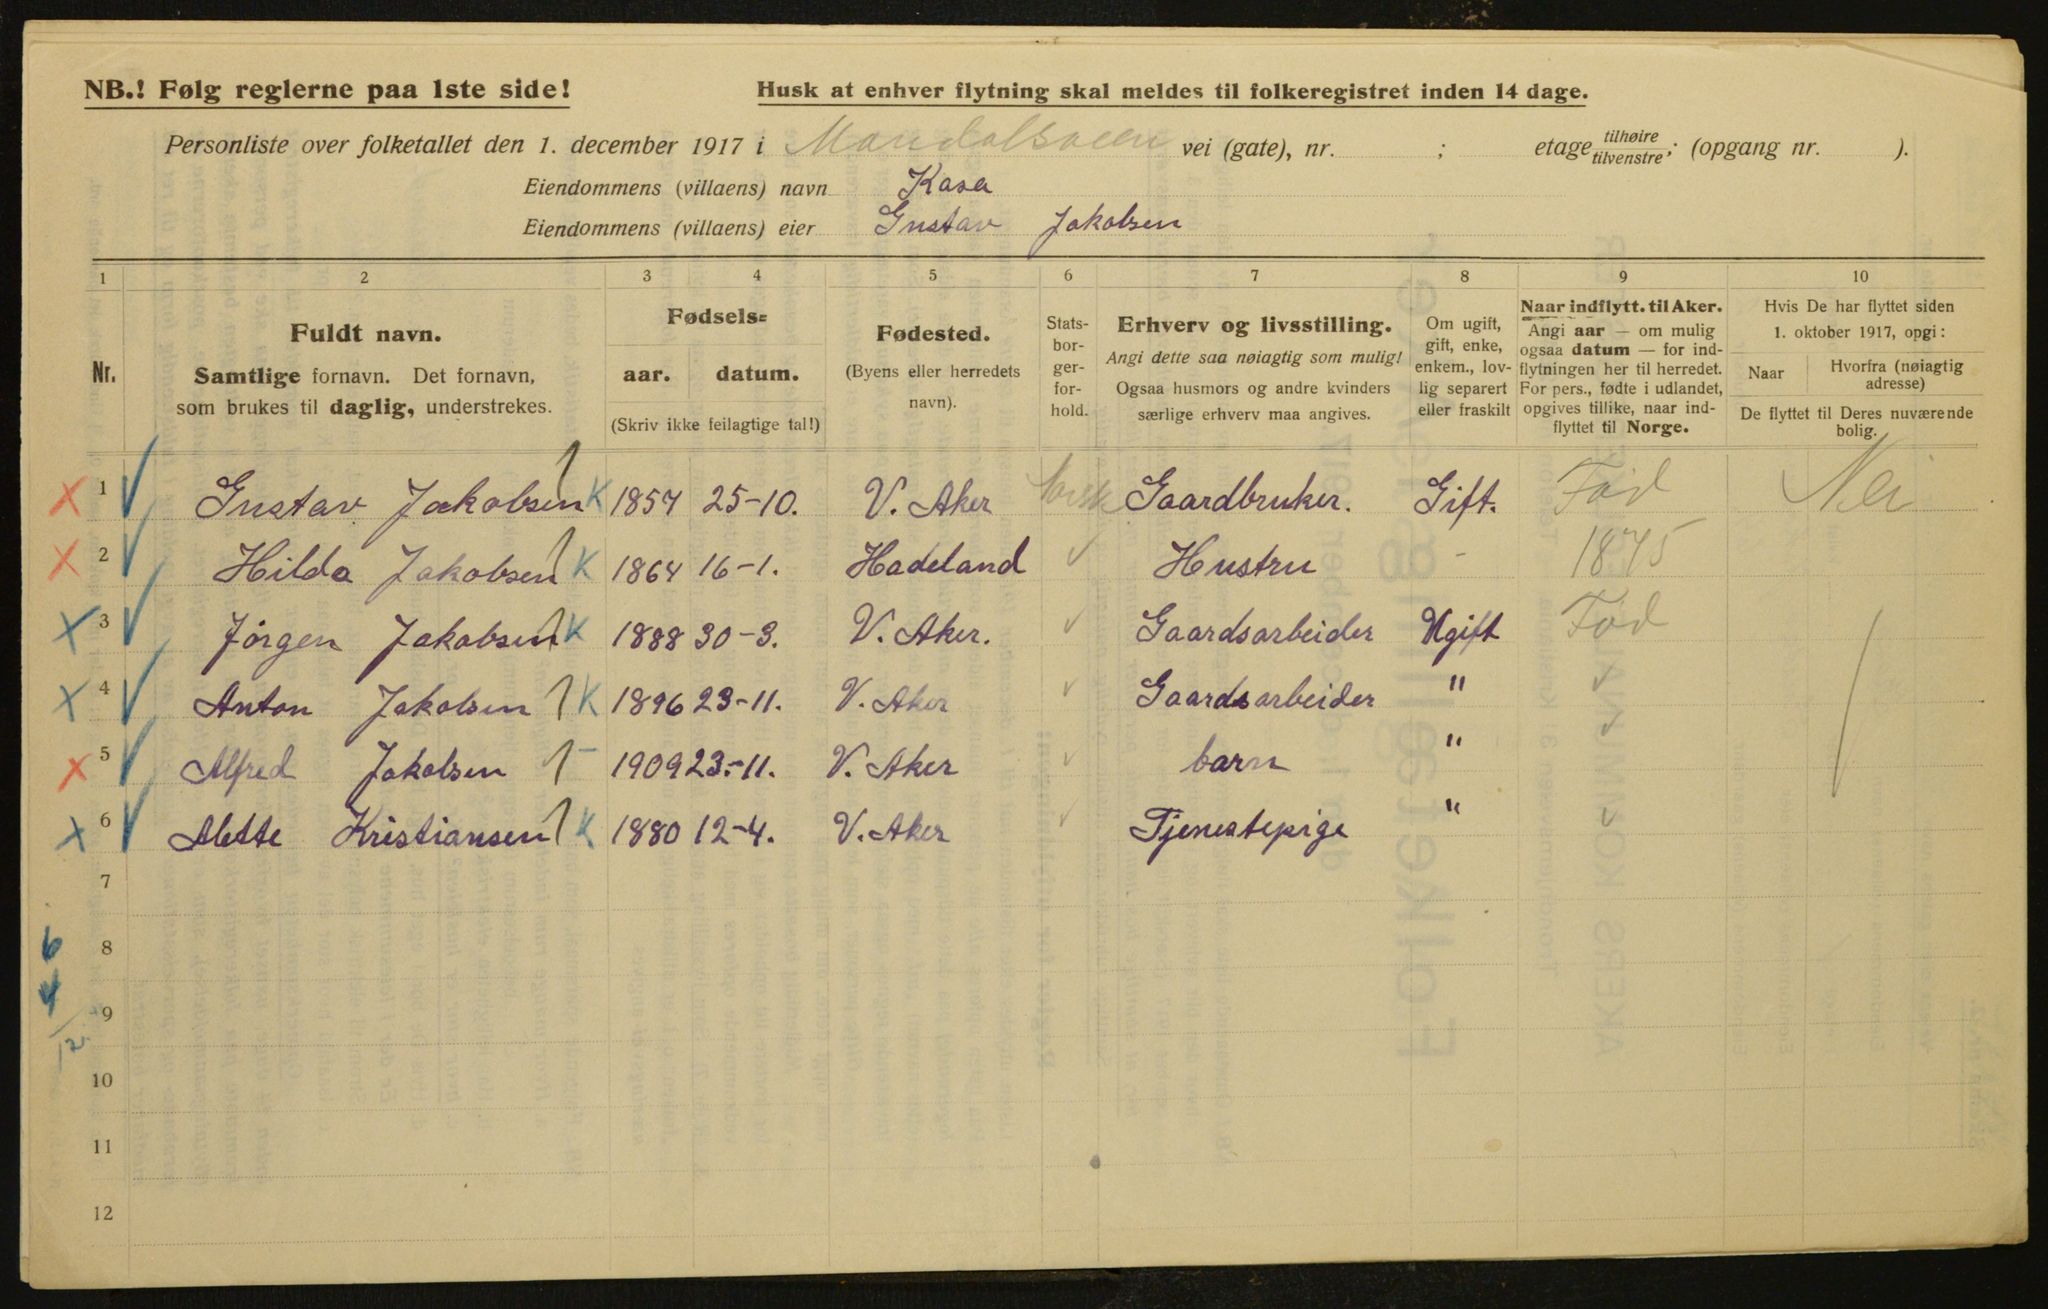 NB.! Følg reglerne paa 1ste side!
Husk at enhver flytning skal meldes til folkeregistret inden 14 dage.
Personliste over folketallet den 1. december 1917 i vei (gate), nr. ; etage tilhøire tilvenstre; (opgang nr. ).
Eiendommens (villaens) navn Kasa
Eiendommens (villaens) eier Gustav Jakobsen
1 2 3 4 5 6 7 8 9 10
Nr.
Fuldt navn.
Samtlige fornavn. Det fornavn,
som brukes til daglig, understrekes.
Fødsels=
aar. datum.
(Skriv ikke feilagtige tal!)
Fødested.
(Byens eller herredets
navn).
Stats-
bor-
ger-
for-
hold.
Erhverv og livsstilling.
Angi dette saa nøiagtig som mulig!
Ogsaa husmors og andre kvinders
særlige erhverv maa angives.
Om ugift,
gift, enke,
enkem., lov-
lig separert
eller fraskilt
Naar indflytt. til Aker.
Angi aar — om mulig
ogsaa datum — for ind-
flytningen her til herredet.
For pers., fødte i utlandet,
opgives tillike, naar ind-
flyttet til Norge.
Hvis De har flyttet siden
1. oktober 1917, opgi:
Naar
Hvorfra (nøiagtig
adresse)
De flyttet til Deres nuværende
bolig.
1 Gustav Jakobsen K 1857 25-10. V. Aker Norsk Gaardbruker. Gift. Fød Nei
2 Hilda Jakobsen K 1864 16-1. Hadeland Hustru - 1875
3 Jörgen Jakobsen K 1888 30-3. V. Aker. Gaardsarbeider Ugift Fød
4 Anton Jakobsen K 1896 23-11. V. Aker Gaardsarbeider "
5 Alfred Jakobsen - 1909 23.-11. V. Aker barn "
6 Alette Kristiansen K 1880 12-4. V. Aker Tjenestepige "
7
8
9
10
11
12